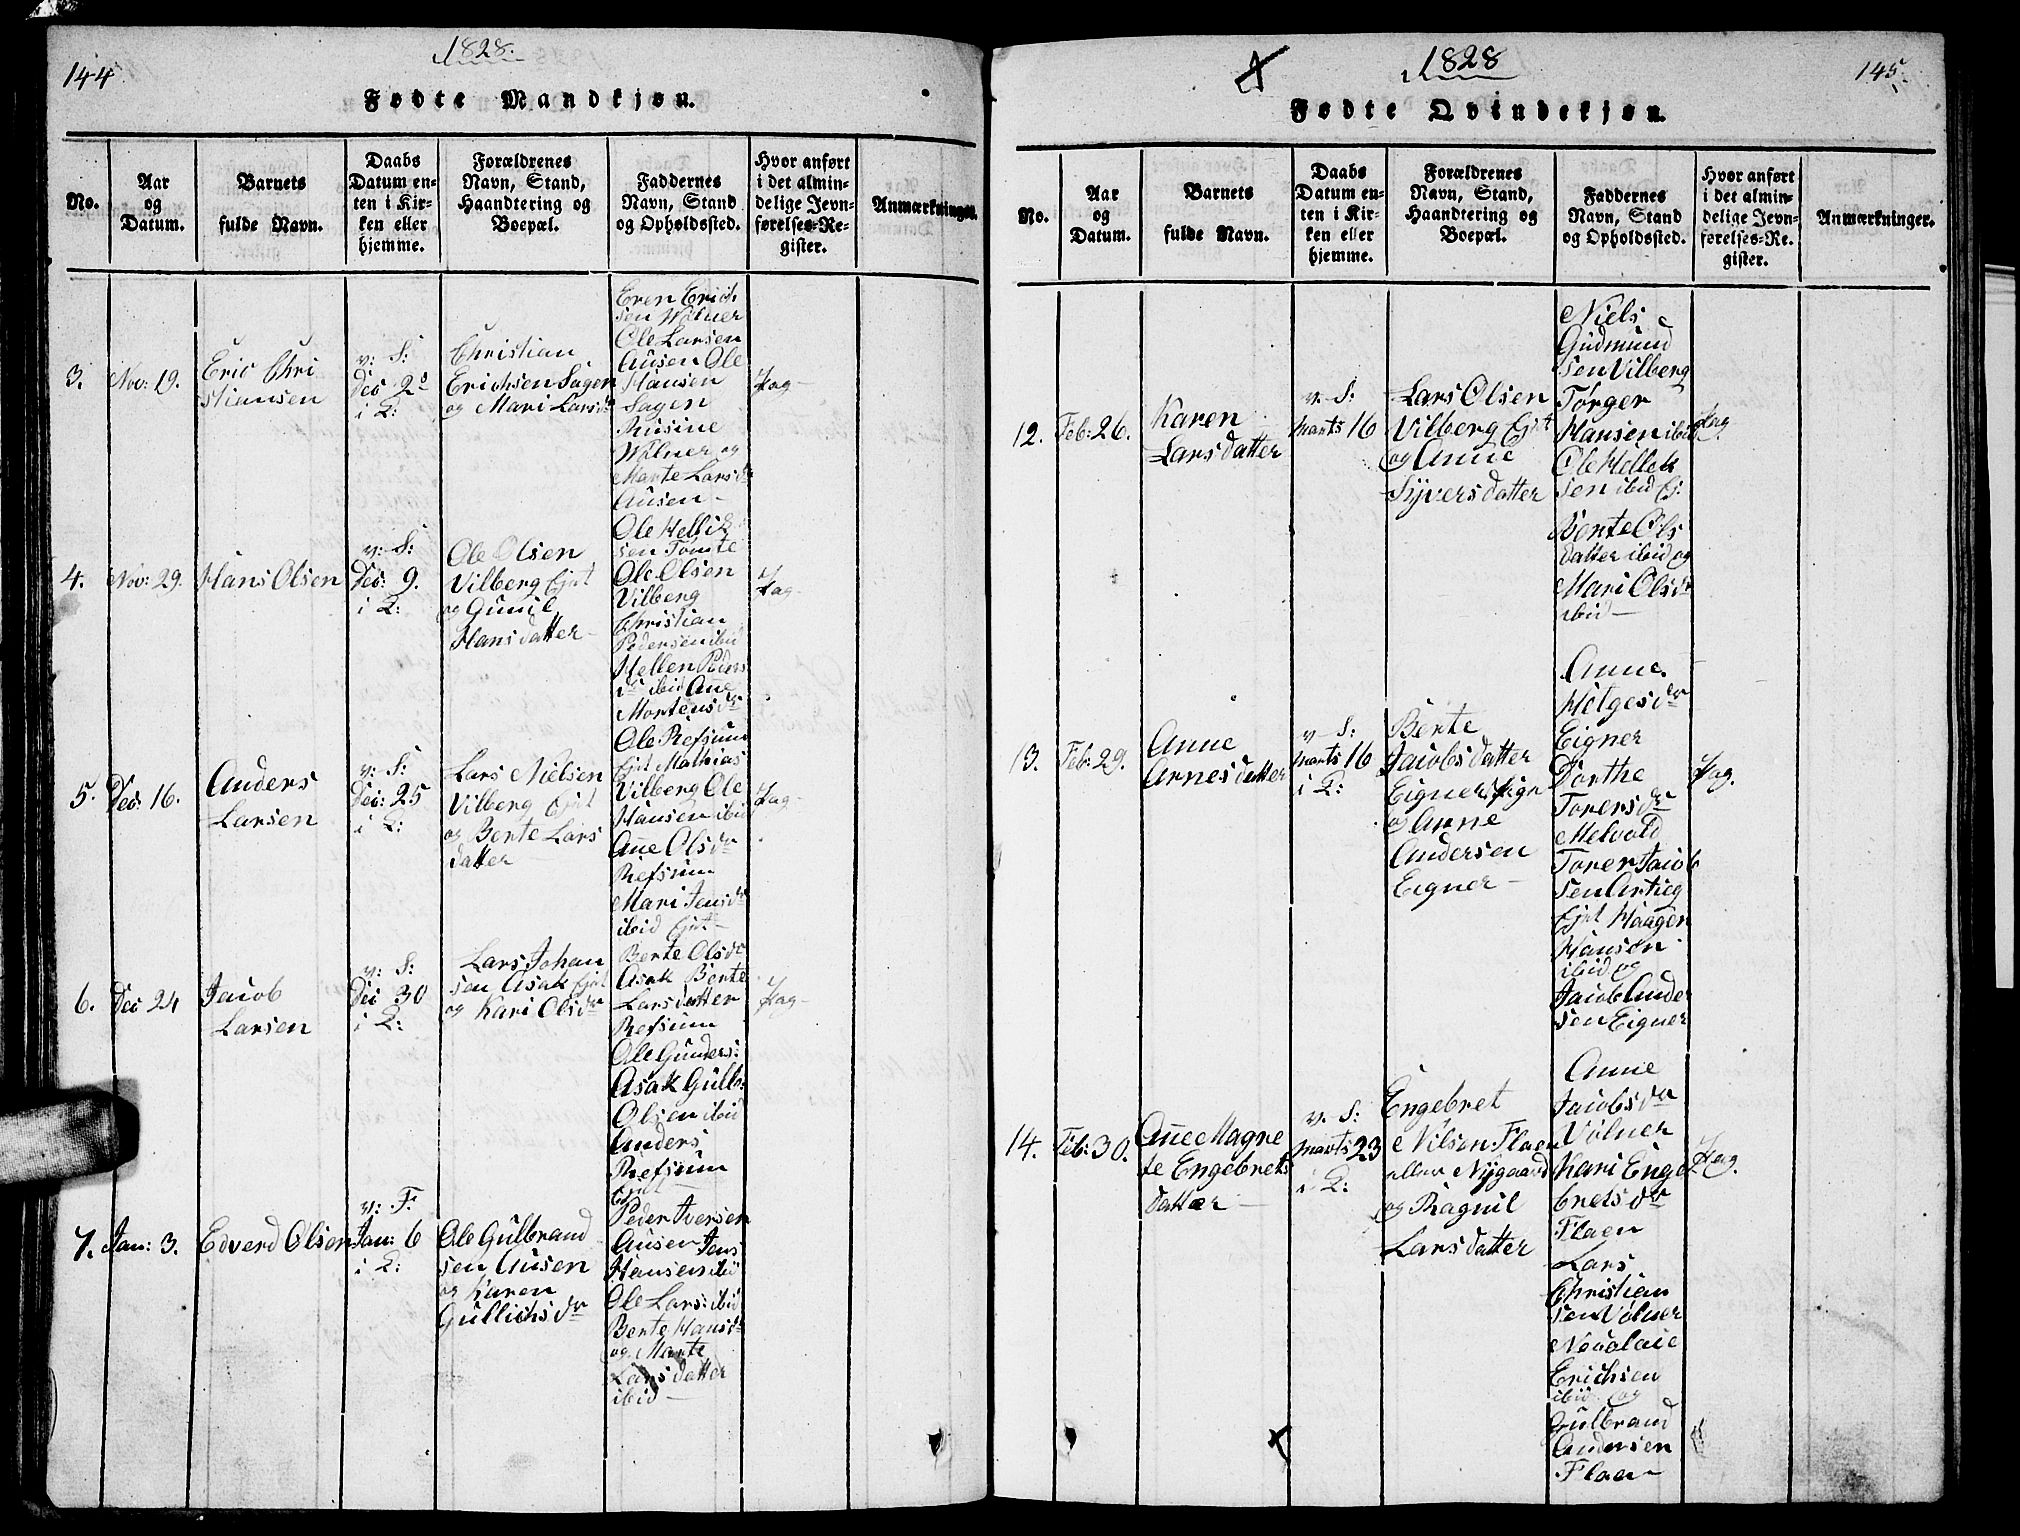 144
1828.
Fødte Mandkjøn.
No.
Aar
og
Datum.
Barnets
fulde Navn.
Daabs
Datum en-
ten i Kir-
ken eller
hjemme.
Forældrenes
Navn, Stand,
Haandtering og
Boepæl.
Faddernes
Navn, Stand
og Opholdssted.
Hvor anført
i det almin-
delige Jevn-
førelses-Re-
gister.
Anmærkninger.
3.
Nov: 19.
Eric Chri
stiansen
v: S:
Dec 2
i K:
Christian
Erichsen Sagen
og Mari Larsdr
Even Erich
sen Wølner
Ole Larsen
Ausen Ole
Hansen
Sagen
Wølner og
Marte Larsdr
Ausen
Pag
4.
Nov: 29.
Hans Olsen
v: S:
Dec: 9.
i K:
Ole Olsen
Vilberg Ejnt
og Gunil
Hansdatter
Ole Hellik
sen Tomte
Ole Olsen
Vilberg
Christian
Pedersen ibid
Hellen Peders
dr ibid Ane
Mortensdr
Pag
5.
Dec: 16.
Anders
Larsen
v: S:
Dec: 25
i K:
Lars Nielsen
Vilberg Ejnt
og Berte Lars
datter
Ole Refsum
Ejnt Mathias
Vilberg Ole
Hansen ibid
Ane Olsdr
Refsum
Mari Jensdr
ibid Ejnt
Pag
6.
Dec 24
Jacob
Larsen
v: S:
Dec 30
i K:
Lars Johan
sen Asak Ejnt
og Kari Olsdr
Berte Olsdr
Asak Berte
Larsdatter
Refsum
Ole Gunders:
Asak Gulb:
Olsen ibid
Anders
Refsum
Ejnt
Pag
7.
Jan: 3.
Edverd Olsen
v: F.
Jan: 6
i K:
Ole Gulbrand
sen Ausen
og Karen
Gullichsdr
Peder Iversen
Ausen Jens
Hansen ibid
Ole Lars: ibid
Berte Hansdr
og Marte
Larsdatter
ibid
1828
145.
Fødte Qvindekjøn.
No.
Aar
og
Datum.
Barnets
fulde Navn.
Daabs
Datum en-
ten i Kir-
ken eller
hjemme.
Forældrenes
Navn, Stand,
Haandtering og
Boepæl.
Faddernes
Navn, Stand
og Opholdssted.
Hvor anført
i det almin-
delige Jevn-
førelses-Re-
gister.
Anmærkninger.
12.
Feb: 26.
Karen
Larsdatter
v: S:
Marts 16
Lars Olsen
Vilberg Ejnt
og Anne
Syversdatter
Niels
Gudmund
sen Vilberg
Torger
Hansen ibid
Ole Hellek
sen ibid Ej:
Berte Ols
datter ibid og
Mari Olsdr
ibid
Pag.
13.
Feb: 29.
Anne
Arnesdatter
v: S:
Marts 16
i K:
Berte
Jacobsdatter
Eigner
og Arne
Andersen
Eigner
Anne
Helgesdr
Eigner
Dorthe
Toversdr
Melvold
Tover Jacob
sen Artieg
Ejnt Haagen
Hansen
ibid og
Jacob Ander
sen Eigner
Pag.
14.
Feb: 30.
Ane Magre
te Engebrets
datter
v: S:
Marts 23
i K:
Engebret
Nilsen Flaen
eller Nygaard
og Ragnil
Larsdatter
Anne
Jacobsdr
Vølner
Kari Enge
bretsdr
Flaen
Lars
Christian
sen Vølner
Nicolaie
Erichsen
ibid og
Gulbrand
Andersen
Flaen
Pag.